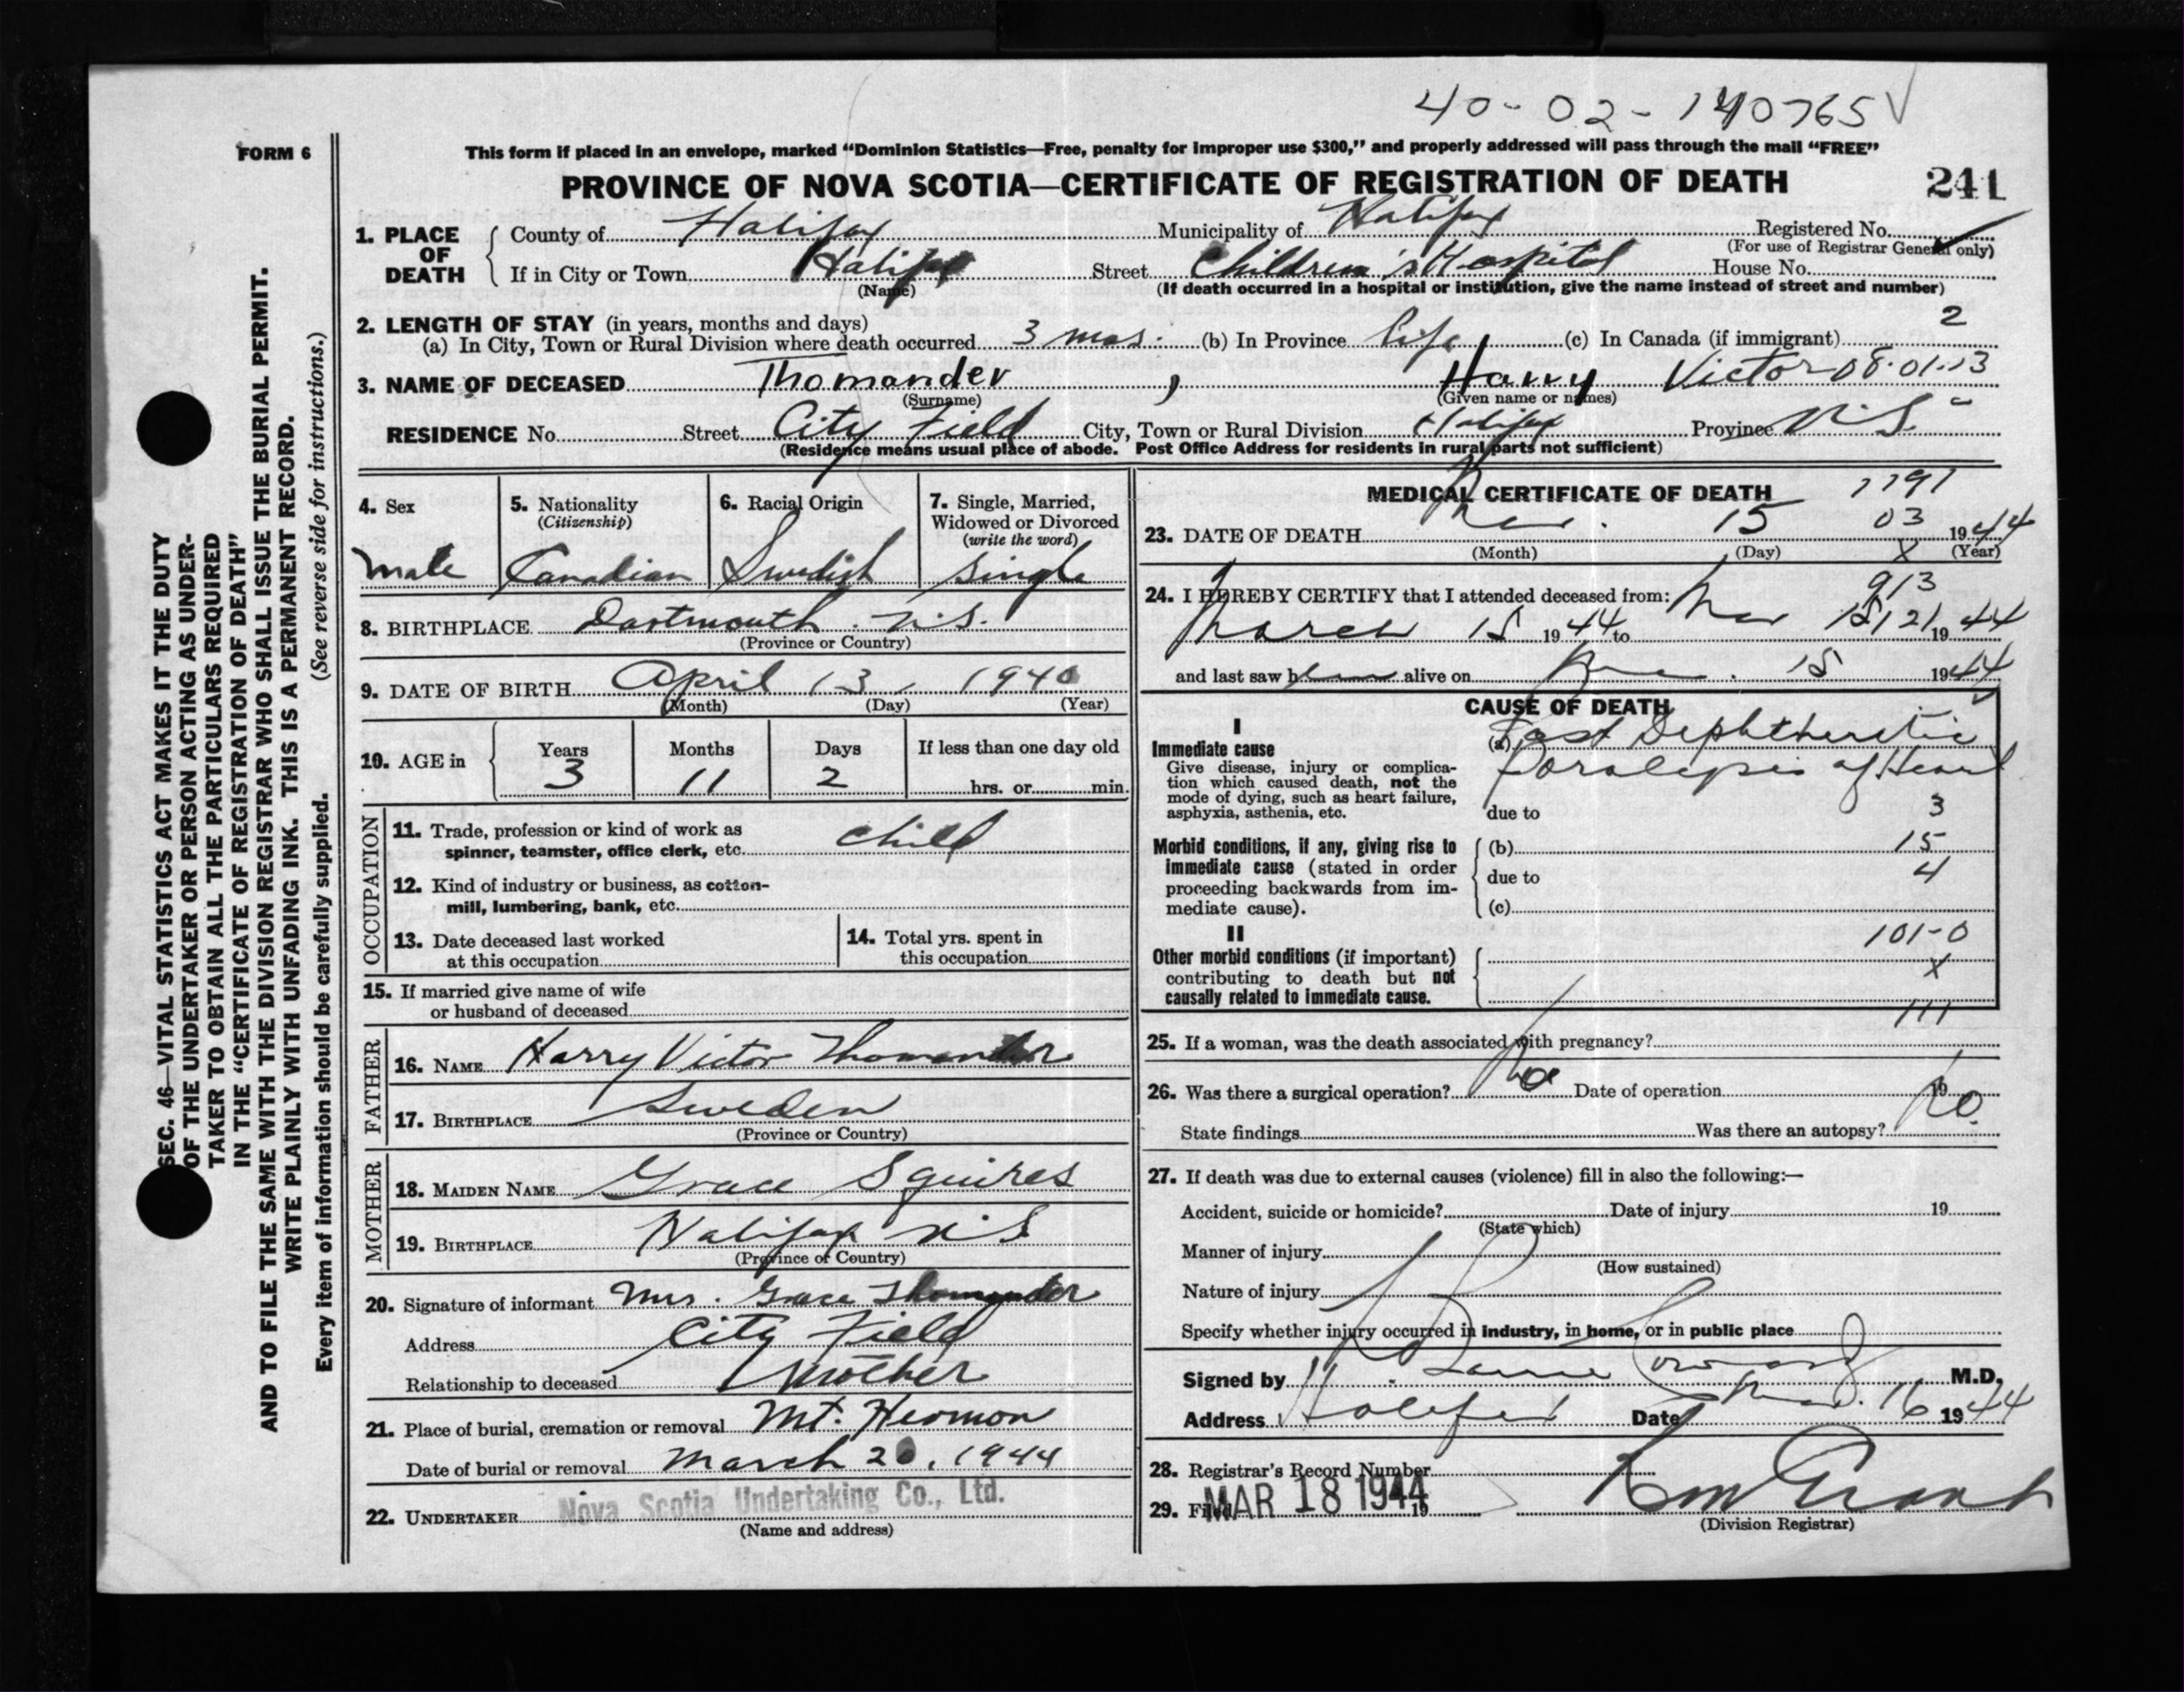 40-02-140765 √
FORM 6
This form if placed in an envelope, marked "Dominion Statistics—Free, penalty for improper use $300," and properly addressed will pass through the mail "FREE"
PROVINCE OF NOVA SCOTIA—CERTIFICATE OF REGISTRATION OF DEATH 241
1. PLACE OF DEATH County of Halifax Municipality of Halifax Registered No.
(For use of Registrar General only)
If in City or Town Halifax Street Children's Hospital House No.
(Name) (If death occurred in a hospital or institution, give the name instead of street and number)
2. LENGTH OF STAY (in years, months and days) 2
(a) In City, Town or Rural Division where death occurred 3 mos. (b) In Province life (c) In Canada (if immigrant)
3. NAME OF DECEASED Thomander, Harry Victor 08.01.13
(Surname) (Given name or names)
RESIDENCE No. Street City Field City, Town or Rural Division Halifax Province N.S.
(Residence means usual place of abode. Post Office Address for residents in rural parts not sufficient)
4. Sex
male
5. Nationality
(Citizenship)
Canadian
6. Racial Origin
Swedish
7. Single, Married,
Widowed or Divorced
(write the word)
single
8. BIRTHPLACE Dartmouth. N.S.
(Province or Country)
9. DATE OF BIRTH April 13, 1940
(Month) (Day) (Year)
10. AGE in Years Months Days If less than one day old
3 11 2 hrs. or min.
OCCUPATION
11. Trade, profession or kind of work as
spinner, teamster, office clerk, etc. child
12. Kind of industry or business, as cotton-
mill, lumbering, bank, etc.
13. Date deceased last worked
at this occupation
14. Total yrs. spent in
this occupation
15. If married give name of wife
or husband of deceased
FATHER
16. NAME Harry Victor Thomander
17. BIRTHPLACE Sweden
(Province or Country)
MOTHER
18. MAIDEN NAME Grace Squires
19. BIRTHPLACE Halifax N.S
(Province or Country)
20. Signature of informant Mrs. Grace Thomander
Address City Field
Relationship to deceased Mother
21. Place of burial, cremation or removal Mt. Hermon
Date of burial or removal March 20, 1944
22. UNDERTAKER Nova Scotia Undertaking Co., Ltd.
(Name and address)
MEDICAL CERTIFICATE OF DEATH
23. DATE OF DEATH Mar. 15 03 1944
(Month) (Day) X (Year)
913
24. I HEREBY CERTIFY that I attended deceased from:
March 15 1944 to Mar 15 121 1944
and last saw him alive on Mar. 15 1944
CAUSE OF DEATH
I
Immediate cause
Give disease, injury or complica-
tion which caused death, not the
mode of dying, such as heart failure,
asphyxia, asthenia, etc.
(a) Post Diphtheritic
Paralysis of Heart
due to 3
Morbid conditions, if any, giving rise to
immediate cause (stated in order
proceeding backwards from im-
mediate cause).
(b) 15
due to 4
(c)
II
101-0
Other morbid conditions (if important)
contributing to death but not
causally related to immediate cause.
X
111
25. If a woman, was the death associated with pregnancy?
26. Was there a surgical operation? No Date of operation 19
State findings Was there an autopsy? No.
27. If death was due to external causes (violence) fill in also the following:—
Accident, suicide or homicide? Date of injury 19
(State which)
Manner of injury
(How sustained)
Nature of injury
Specify whether injury occurred in industry, in home, or in public place
Signed by M.D.
Address Halifax Date Mar. 16 1944
28. Registrar's Record Number
29. Filed MAR 18 1944 19
(Division Registrar)
SEC. 46—VITAL STATISTICS ACT MAKES IT THE DUTY
OF THE UNDERTAKER OR PERSON ACTING AS UNDER-
TAKER TO OBTAIN ALL THE PARTICULARS REQUIRED
IN THE "CERTIFICATE OF REGISTRATION OF DEATH"
AND TO FILE THE SAME WITH THE DIVISION REGISTRAR WHO SHALL ISSUE THE BURIAL PERMIT.
WRITE PLAINLY WITH UNFADING INK. THIS IS A PERMANENT RECORD.
Every item of information should be carefully supplied. (See reverse side for instructions.)